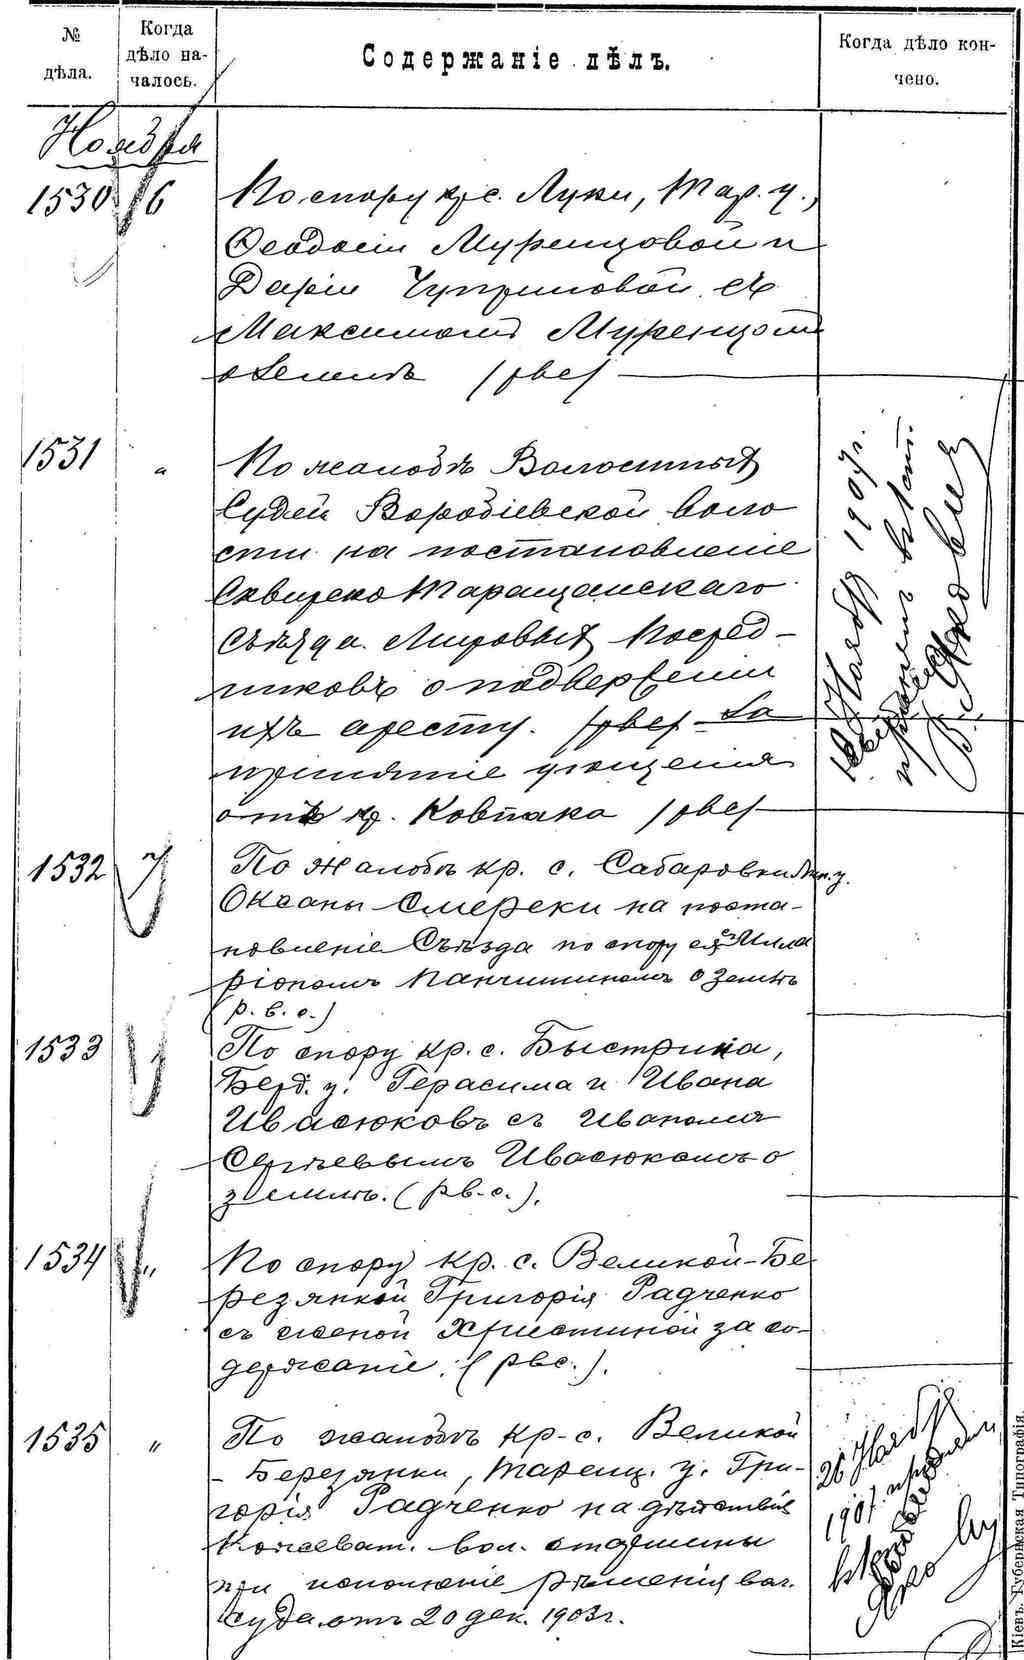 № дѣла.
Когда дѣло на-
чалось.
Содержаніе дѣлъ.
Когда дѣло кон-
чено.
Ноября
1530 6 По спору кр. с. Луки, Тар. у.,
Ѳеодосіи Муренцовой и
Даріи Чуприновой съ
Максимомъ Муренцомъ
о землѣ
1531 " По жалобѣ Волостныхъ
Судей Воробіевской воло
сти на постановленіе
Сквирско Таращанскаго
Съѣзда Мировыхъ Посред-
никовъ о подверженіи
ихъ аресту. За
принятіе угощенія
отъ кр. Ковтака
Ноября 1907 г.
1532 7 По жалобѣ кр. с. Сабаровки Лип. у.
Оксаны Смереки на поста-
новленіе Съѣзда по спору ея съ Илла
ріономъ о землѣ
(р. в. о.)
1533 " По спору кр. с. Быстрика,
Берд. у. Герасима и Ивана
Ивасюковъ съ Иваномъ
Сергѣевымъ Ивасюкомъ о
землѣ. (рв. о.).
1534 " По спору кр. с. Великой-Бе
резянкой Григорія Радченко
съ женой Христиной за со-
держаніе. (рво.).
1535 " По жалобѣ кр. с. Великой
- Березянки, Таращ. у. Гри-
горія Радченко на дѣйствія
вол. старшины
при исполненіе рѣшенія вол.
суда отъ 20 дек. 1903 г.
26 Ноября
1907.
Кіевъ. Губернская Типографія.